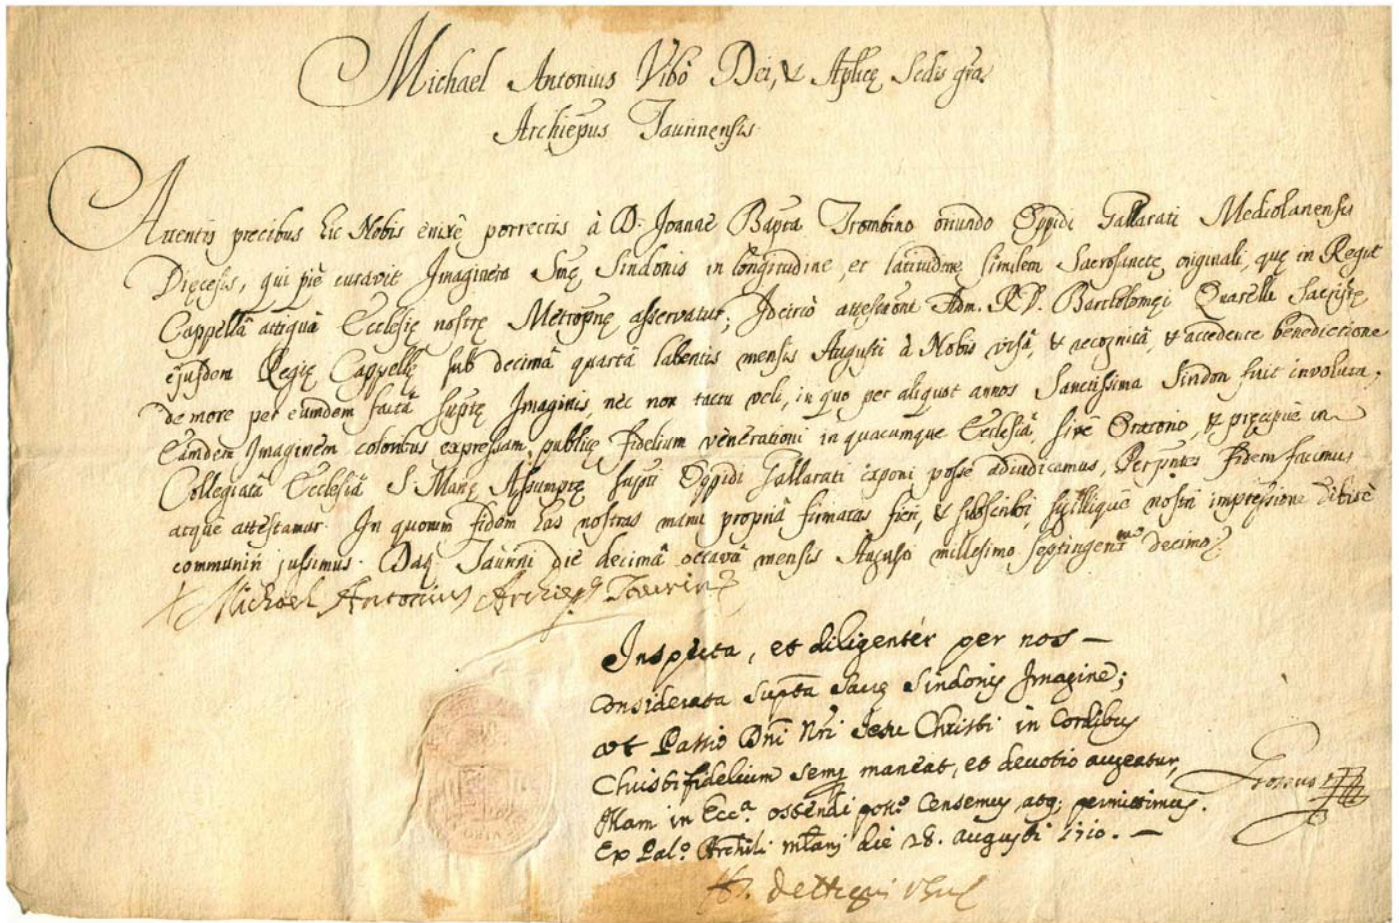 Michael Antonius Vibò Dei, & Aplicę Sedis gra
Archiepus Taurinensis
Attentis precibus hic Nobis enixè porrectis à D. Joanne Bapta Trombino oriundo Oppidi Gallarati Mediolanensis
Dięcesis, qui piè curavit Imaginem Smę Sindonis in longitudine, et latitudine similem Sacrosanctę originali, quę in Regia
Cappellâ attiguâ Ecclesię nostrę Metropnę asservatur; Idcircò attestatione Adm. R.D. Bartholomęi Quarelli Sacristę
ejusdem Regię Cappellę sub decimâ quartâ labentis mensis Augusti à Nobis visâ, & recognitâ, & accedente benedictione
de more per eumdem factâ suptę Imaginis, nèc non tactu veli, in quo per aliquot annos Sanctissima Sindon fuit involuta;
Eamdem Imaginem coloribus expressam, publicę fidelium venerationi in quacumque Ecclesiâ, sivè Oratorio, & pręcipuè in
Collegiatâ Ecclesiâ S. Marię Assumptę supti Oppidi Gallarati exponi posse adiudicamus, Per pntes fidem facimus
atque attestamur. In quorum fidem has nostras manu propriâ firmatas fieri, & subscribi, sigillique nostri impressione
communiri jussimus. Dat. Taurini die decimâ octavâ mensis Augusti millesimo septingen.mo decimo
+ Michael Antonius Archieps Taurin
Inspecta, et diligentèr per nos —
considerata supta Sacrę Sindonis Imagine;
ut Passio Dni Nri Jesu Christi in Cordibus
Christifidelium semp maneat, et devotio augeatur,
Illam in Ecca ostendi posse Censemus atq; permittimus.
Ex Palo Archili mlani die 28. augusti 1710. —